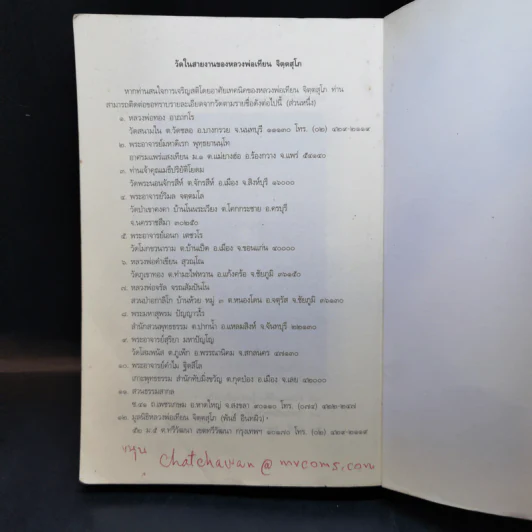 วัดในสายงานของหลวงพ่อเทียน จิตฺตสุโภ
หากท่านสนใจการเจริญสติโดยอาศัยเทคนิคของหลวงพ่อเทียน จิตฺตสุโภ ท่าน
สามารถติดต่อขอทราบรายละเอียดจากวัดตามรายชื่อดังต่อไปนี้ (ส่วนหนึ่ง)
๑. หลวงพ่อทอง อาภากโร
วัดสนามใน ต.วัดชลอ อ.บางกรวย จ.นนทบุรี ๑๑๑๓๐ โทร. (๐๒) ๔๒๙-๒๑๑๙
๒. พระอาจารย์มหาดิเรก พุทธยานนฺโท
อาศรมแพร่แสงเทียน ม.๑ ต.แม่ยางฮ่อ อ.ร้องกวาง จ.แพร่ ๕๔๑๔๐
๓. ท่านเจ้าคุณเมธีปริยัติโยดม
วัดพระนอนจักรสีห์ ต.จักรสีห์ อ.เมือง จ.สิงห์บุรี ๑๖๐๐๐
๔. พระอาจารย์วิมล
วัดป่าเขาคงคา บ้านโนนระเวียง ต.โคกกระชาย อ.ครบุรี
จ.นครราชสีมา ๓๐๒๕๐
๕. พระอาจารย์อเนก เตชวโร
วัดโมกขวนาราม ต.บ้านเป็ด อ.เมือง จ.ขอนแก่น ๔๐๐๐๐
๖. หลวงพ่อคำเขียน สุวณฺโณ
วัดภูเขาทอง ต.ท่ามะไฟหวาน อ.แก้งคร้อ จ.ชัยภูมิ ๓๖๑๕๐
๗. หลวงพ่อจรัล จรณสัมปันโน
สวนป่าอกาลิโก บ้านห้วย หมู่ ๓ ต.หนองโดน อ.จตุรัส จ.ชัยภูมิ ๓๖๑๓๐
๘. พระมหาสุพรม ปัญญาวโร
สำนักสวนพุทธธรรม ต.ปากน้ำ อ.แหลมสิงห์ จ.จันทบุรี ๒๒๑๓๐
๙. พระอาจารย์สุริยา มหาปัญโญ
วัดโสมพนัส ต.ภูเพ็ก อ.พรรณานิคม จ.สกลนคร ๔๗๑๓๐
๑๐. พระอาจารย์ดำไม ฐิตสีโล
เกาะพุทธธรรม สำนักทับมิ่งขวัญ ต.กุดป่อง อ.เมือง จ.เลย ๔๒๐๐๐
๑๑. สวนธรรมสากล
ซ.๔๑ ถ.เพชรเกษม อ.หาดใหญ่ จ.สงขลา ๙๐๑๑๐ โทร. (๐๗๔) ๔๒๒-๒๔๗
๑๒. มูลนิธิหลวงพ่อเทียน จิตฺตสุโภ (พันธ์ อินทผิว)
๕๒ ม.๕ ต.ทวีวัฒนา เขตทวีวัฒนา กรุงเทพฯ ๑๐๑๗๐ โทร. (๐๒) ๔๒๙-๒๑๑๙
chatchawan@mvcoms.com